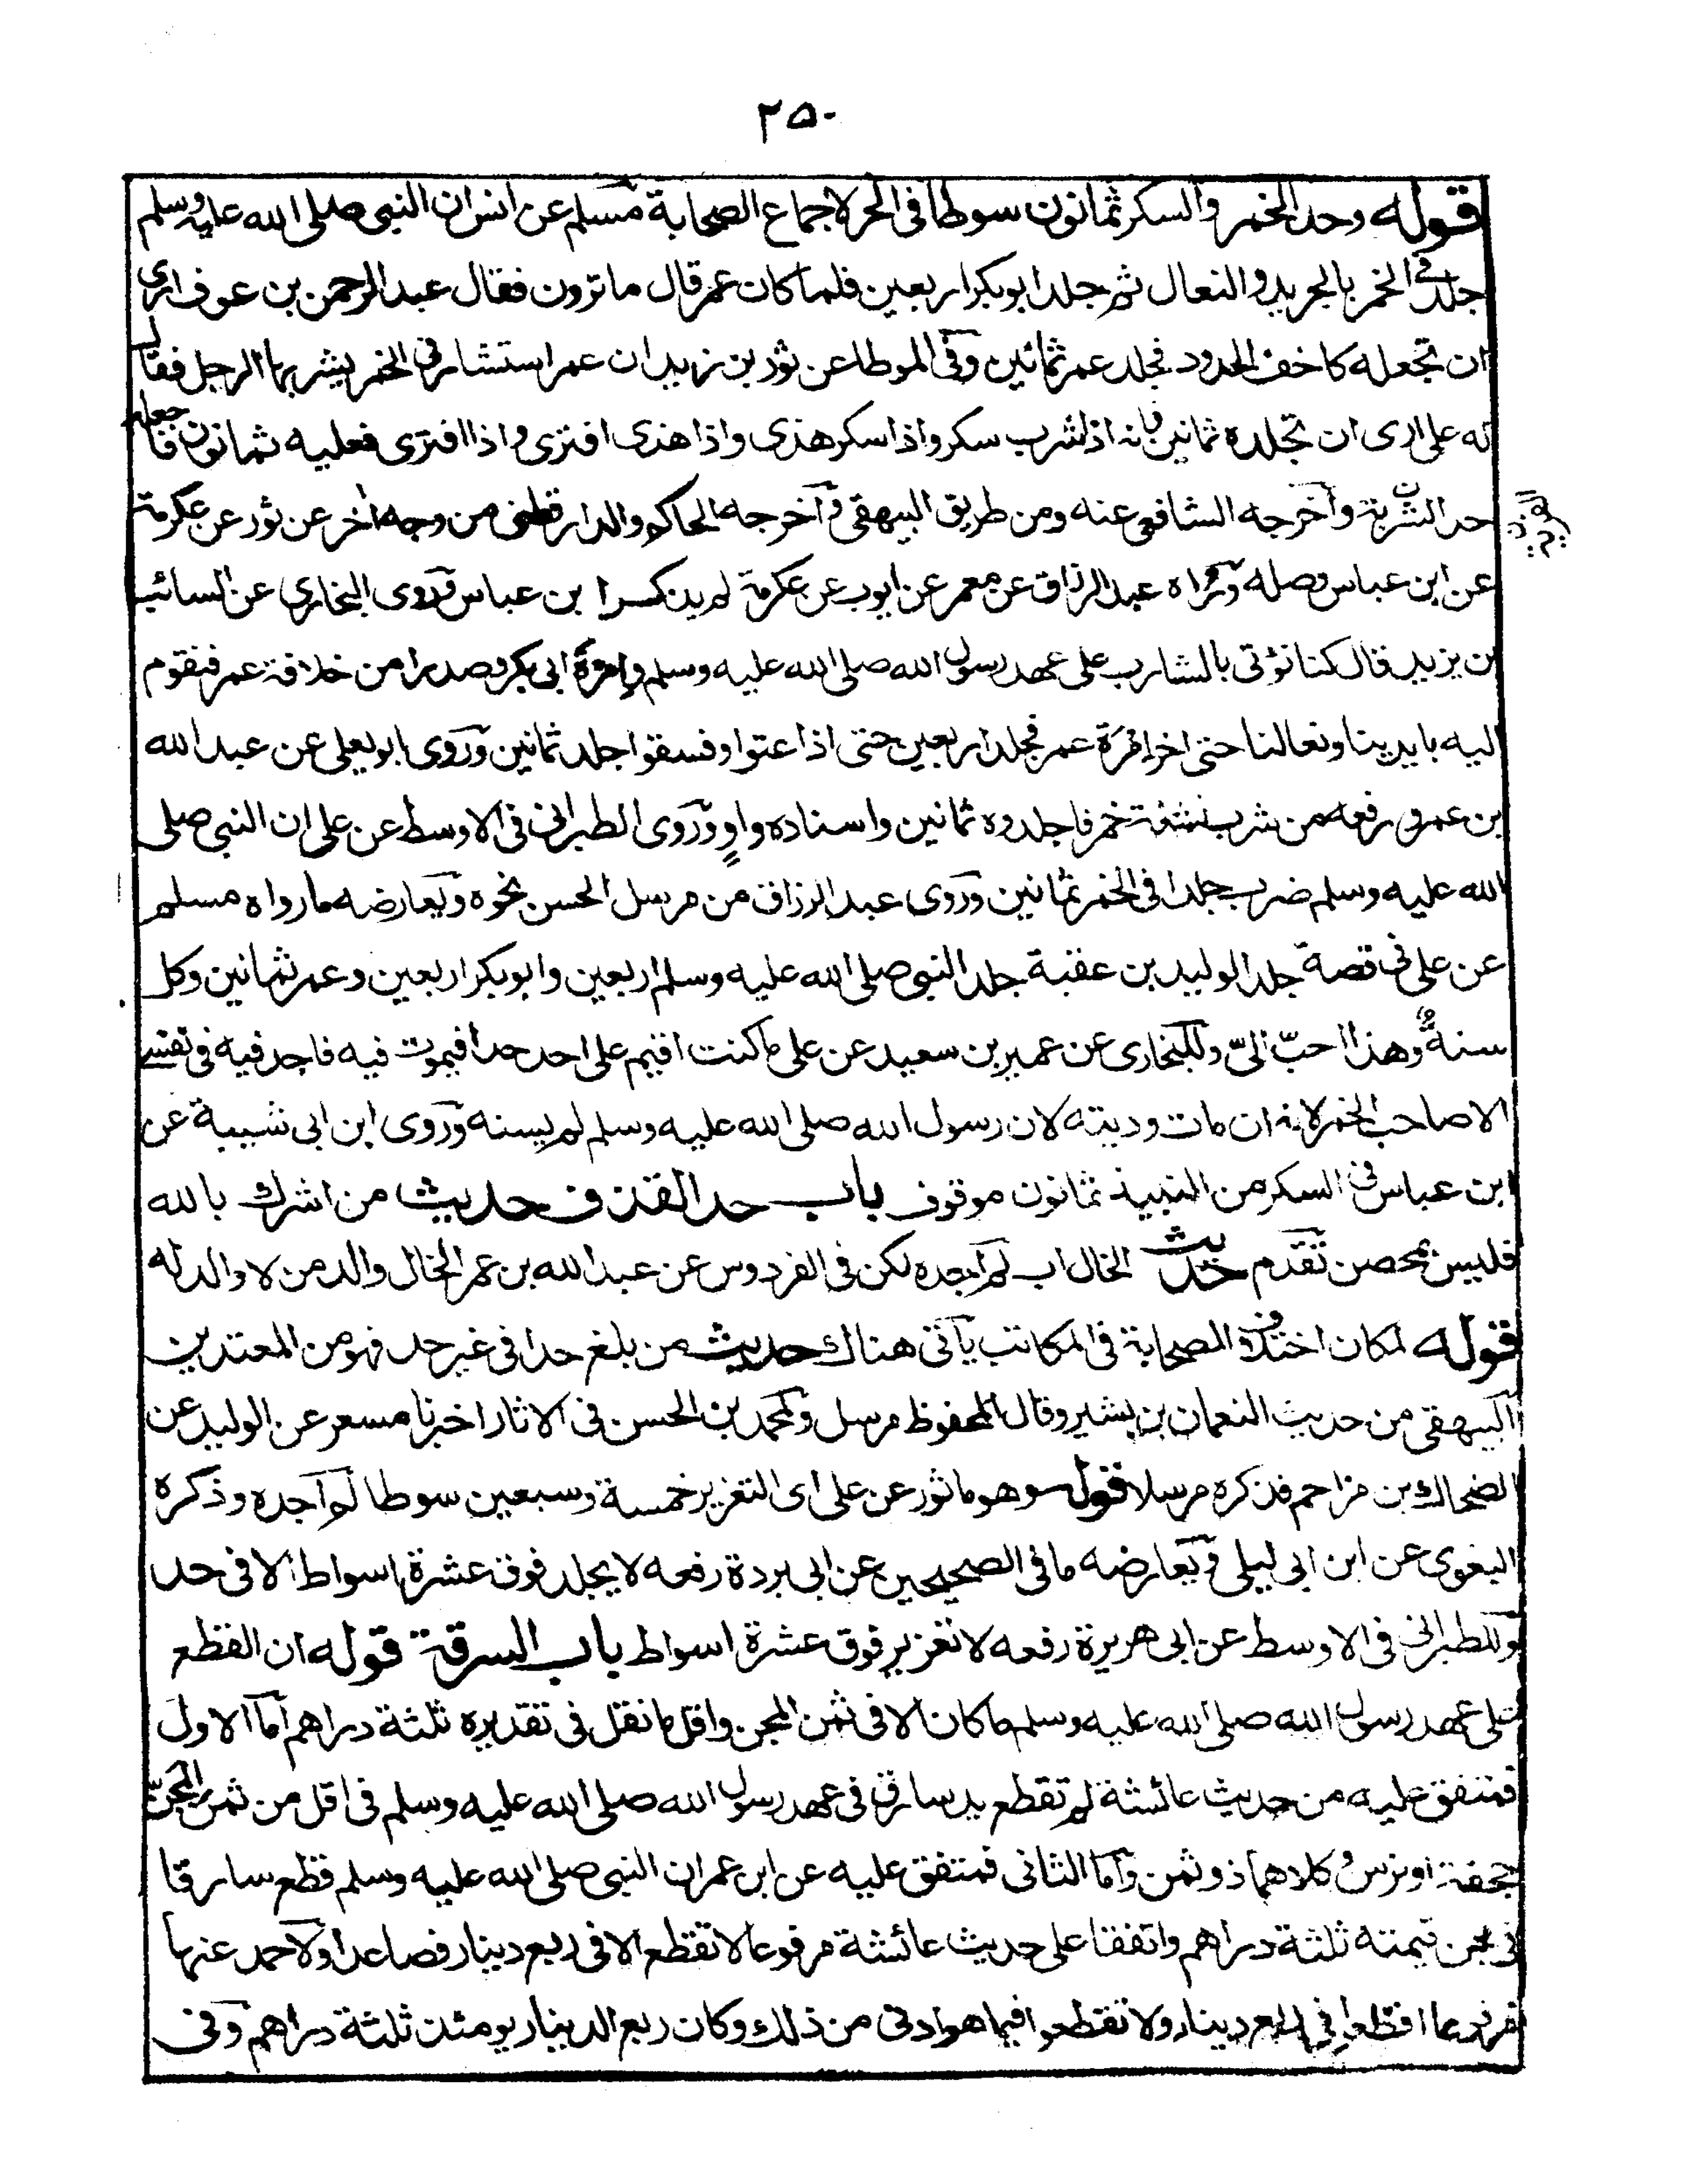 ٢٥٠
قوله وحد الخمر والسكر ثمانون سوطا فى الحر لاجماع الصحابة مسلم عن انس ان النبى صلى الله عليه وسلم
جلد فى الخمر بالجريد والنعال ثم جلد ابو بكر اربعين فلما كان عمر قال ما ترون فقال عبد الرحمن بن عوف ارى
ان تجعله كاخف الحدود فجلد عمر ثمانين وفى الموطا عن ثور بن زيد ان عمر استشار فى الخمر يشربها الرجل فقال
له على ارى ان تجلده ثمانين فانه اذا شرب سكر واذا سكر هذى واذا هذى افترى واذا افترى فعليه ثمانون فاجعله
حد الشربة واخرجه الشافعى عنه ومن طريق البيهقى واخرجه الحاكم والدارقطنى من وجه اخر عن ثور عن عكرمة
عن ابن عباس وصله ورواه عبد الرزاق عن معمر عن ايوب عن عكرمة لم يذكر ابن عباس وروى البخارى عن السائب
بن يزيد قال كنا نؤتى بالشارب على عهد رسول الله صلى الله عليه وسلم وامرة ابى بكر وصدرا من خلافة عمر فنقوم
اليه بايدينا ونعالنا حتى اخر امرة عمر فجلد اربعين حتى اذا عتوا وفسقوا جلد ثمانين وروى ابو يعلى عن عبد الله
بن عمرو رفعه من شرب خمر فاجلدوه ثمانين واسناده واهٍ وروى الطبرانى فى الاوسط عن على ان النبى صلى
الله عليه وسلم ضرب جلدا فى الخمر ثمانين وروى عبد الرزاق من مرسل الحسن نحوه ويعارضه ما رواه مسلم
عن على فى قصة جلد الوليد بن عقبة جلد النبى صلى الله عليه وسلم اربعين وابو بكر اربعين وعمر ثمانين وكل
سنة وهذا احبّ الىّ وللبخارى عن عمير بن سعيد عن على ما كنت اقيم على احد حدا فيموت فيه فاجد فيه فى نفسى
الا صاحب الخمر لانه ان مات وديته لان رسول الله صلى الله عليه وسلم لم يسنه وروى ابن ابى شيبة عن
ابن عباس فى السكر من النبيذ ثمانون موقوف باب حد القذف حديث من اشرك بالله
فليس بمحصن تقدم حديث الخال اب لم اجده لكن فى الفردوس عن عبد الله بن عمر الخال والد من لا والد له
قوله لمكان اختلاف الصحابة فى المكاتب ياتى هناك حديث من بلغ حدا فى غير حد فهو من المعتدين
البيهقى من حديث النعمان بن بشير وقال المحفوظ مرسل ولمحمد بن الحسن فى الاثار اخبرنا مسعر عن الوليد عن
الضحاك بن مزاحم فذكره مرسلا قوله وهو ماثور عن على اى التعزير خمسة وسبعين سوطا لم اجده وذكره
البغوى عن ابن ابى ليلى ويعارضه ما فى الصحيحين عن ابى بردة رفعه لا يجلد فوق عشرة اسواط الا فى حد
وللطبرانى فى الاوسط عن ابى هريرة رفعه لا تعزير فوق عشرة اسواط باب السرقة قوله ان القطع
على عهد رسول الله صلى الله عليه وسلم ما كان الا فى ثمن المجن واقل ما نقل فى تقديره ثلثة دراهم اما الاول
فمتفق عليه من حديث عائشة لم تقطع يد سارق فى عهد رسول الله صلى الله عليه وسلم فى اقل من ثمن المجنّ
حجفة او ترس وكلاهما ذو ثمن واما الثانى فمتفق عليه عن ابن عمر ان النبى صلى الله عليه وسلم قطع سارقا
فى مجن قيمته ثلثة دراهم واتفقا على حديث عائشة مرفوعا لا تقطع الا فى ربع دينار فصاعدا ولاحمد عنها
مرفوعا اقطعوا فى ربع دينار ولا تقطعوا فيما هو ادنى من ذلك وكان ربع الدينار يومئذ ثلثة دراهم وفى